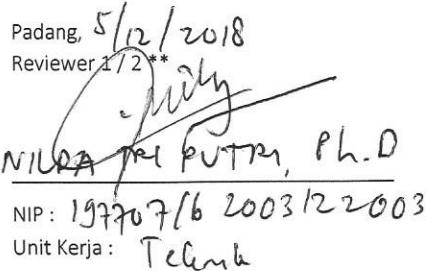 Padang, 5/12/2018
Reviewer 1 / 2 **
NILDA TRI PUTRI, Ph.D
NIP : 19770716 2003122003
Unit Kerja : Teknik